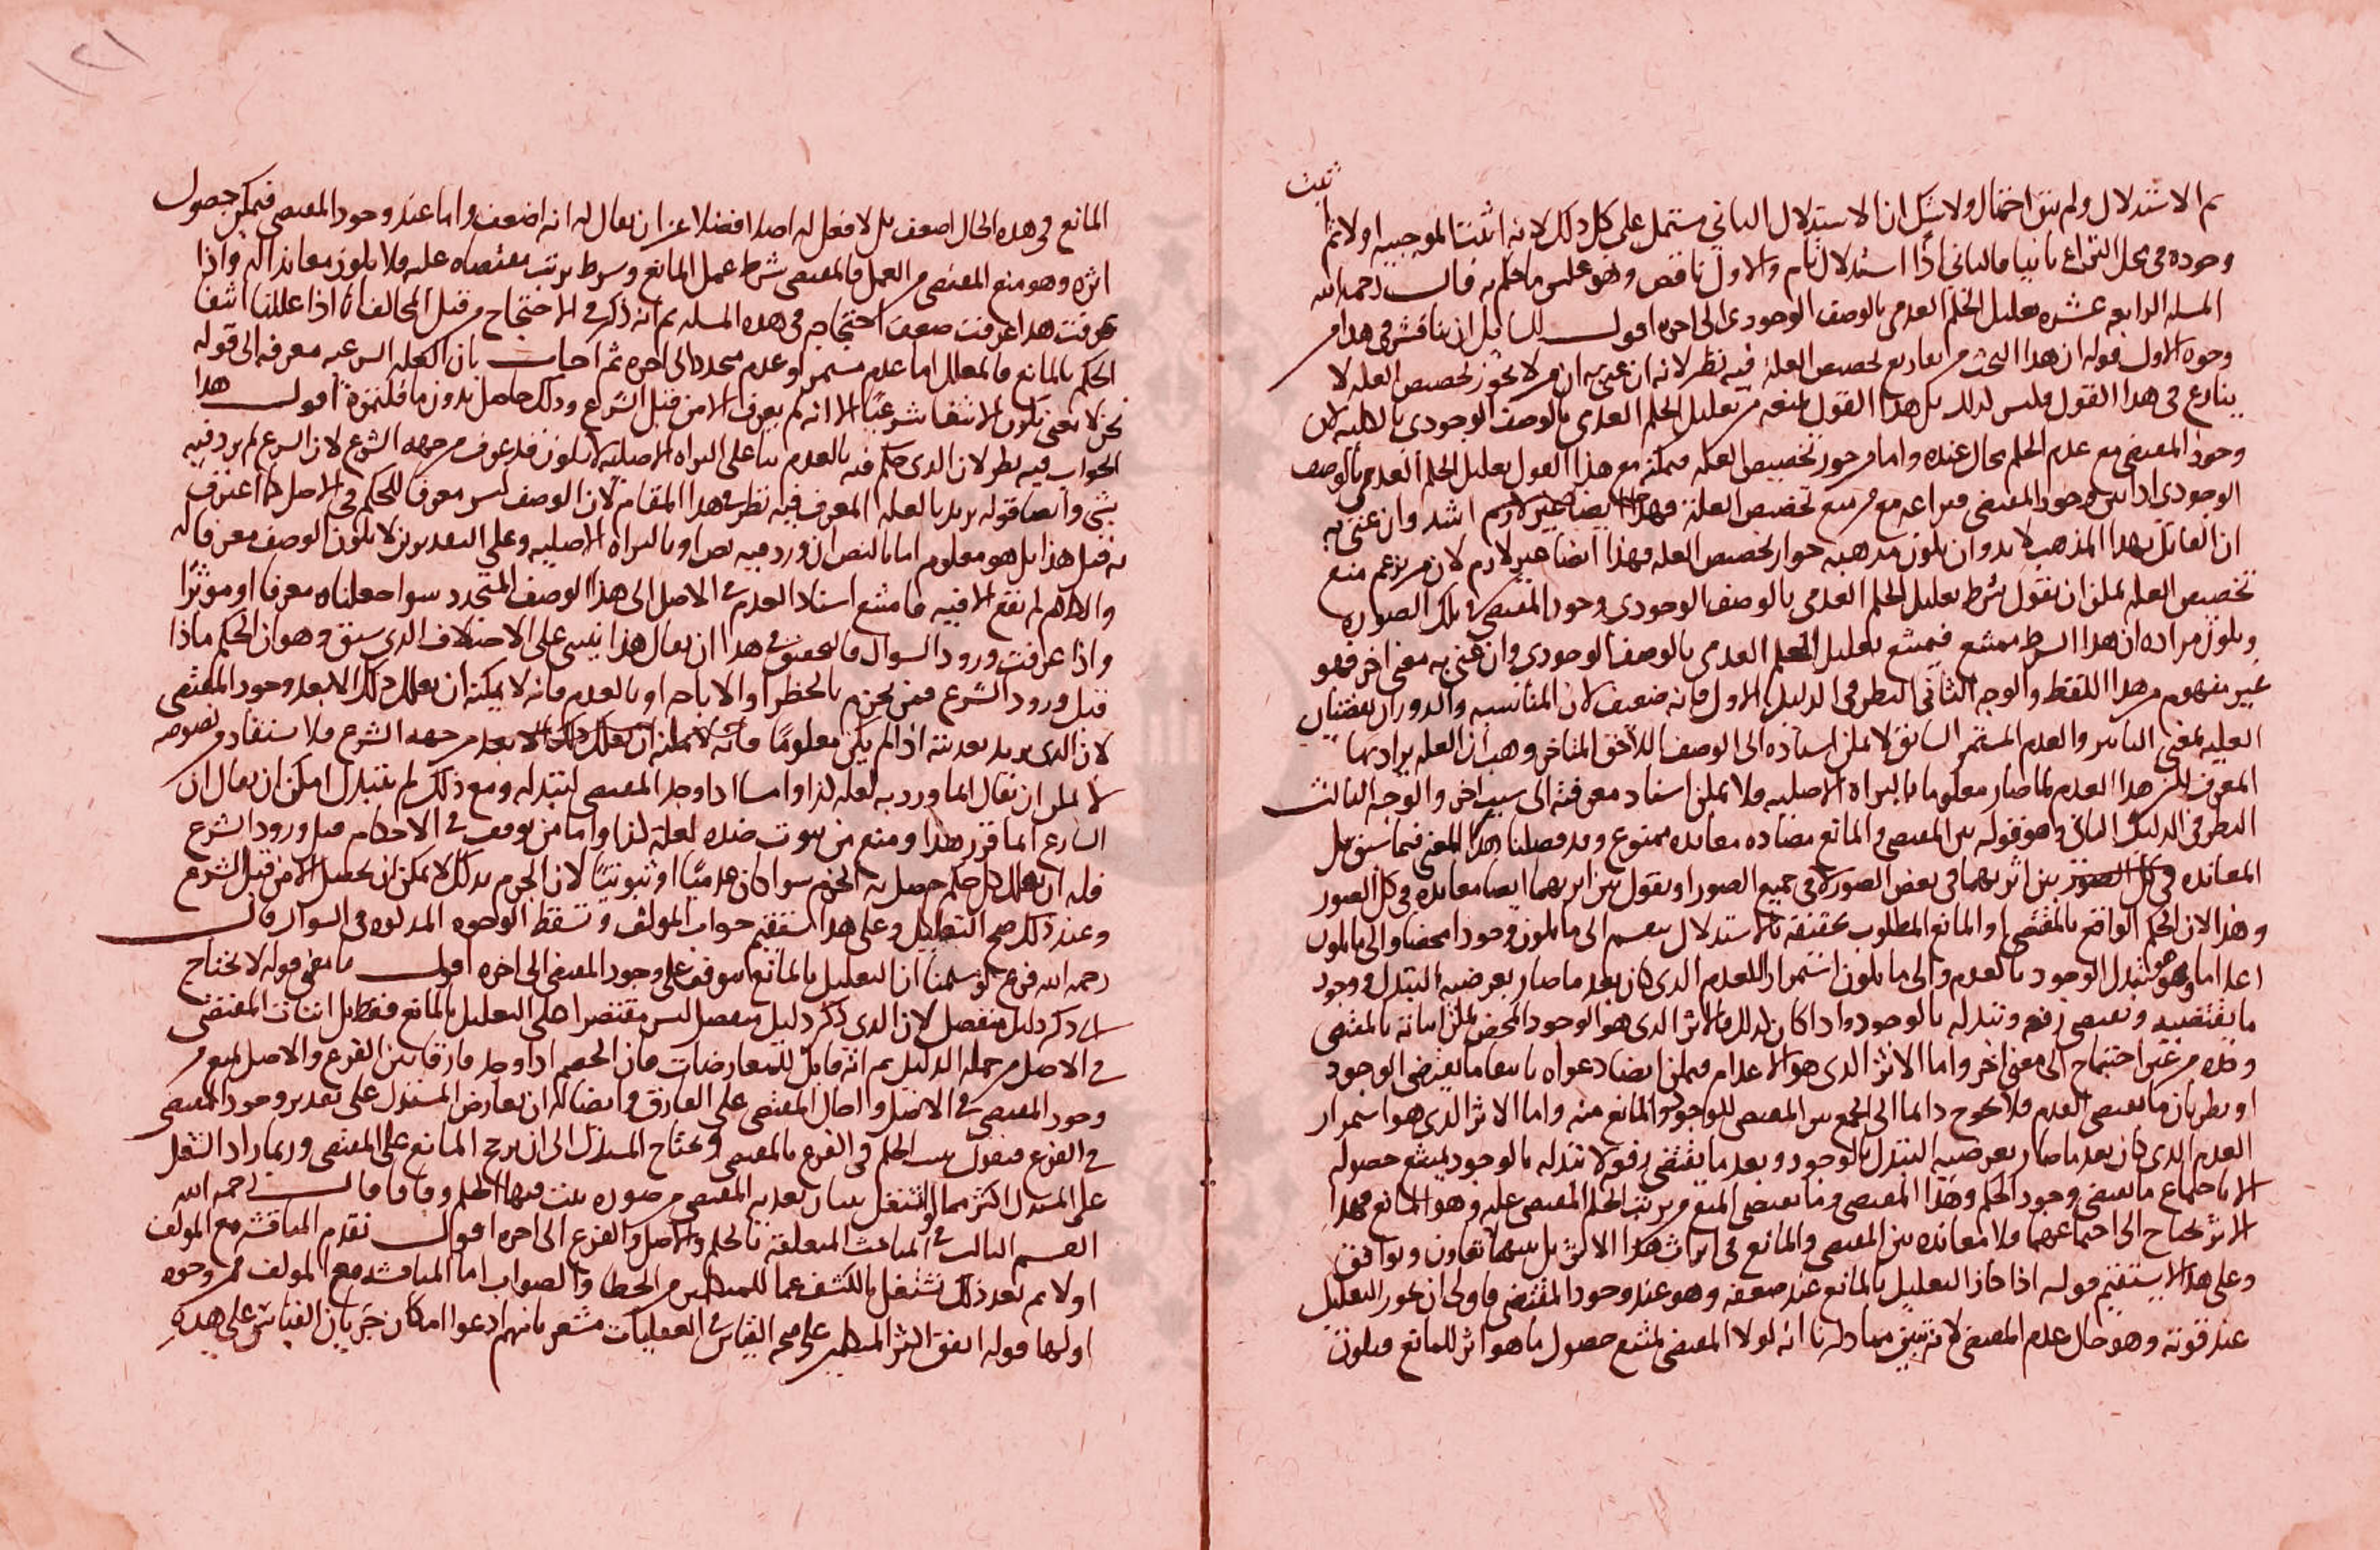 ثبت
ثم الاستدلال ولم يبق احتمال ولا شك ان الاستدلال الثاني مشتمل على كل ذلك لانه اثبت الموجبيه اولا ثم
وجوده في محل النزاع ثانيا فالثاني اذا استدلال تام والاول ناقص وهو عكس ما حكم به قال رحمه الله
المسله الرابعه عشره تعليل الحكم العدمى بالوصف الوجودى الى اخره اقول للسايل ان يناقش في هذا من
وجوه الاول قوله ان هذا البحث من تفاريع تخصيص العله فيه نظر لانه ان عنى به ان من لا يجوز تخصيص العله لا
ينازع في هذا القول فليس كذلك بل هذا القول يمنعه من تعليل الحكم العدمى بالوصف الوجودى بالكليه لان
وجود المقتضى مع عدم الحكم محال عنده واما من جوز تخصيص العله فيمكنه مع هذا القول تعليل الحكم العدمى بالوصف
الوجودى اذا بين وجود المقتضى فنزاعه مع من منع تخصيص العله فهذا ايضا غير لازم اشد وان عنى به
ان القائل بهذا المذهب لا بد وان يكون مذهبه جواز تخصيص العله فهذا ايضا غير لازم لان من يزعم منع
تخصيص العله يمكن ان نقول شرط تعليل الحكم العدمى بالوصف الوجودى وجود المقتضى في تلك الصوره
ويكون مراده ان هذا الشرط ممتنع فيمتنع تعليل الحكم العدمى بالوصف الوجودى وان عنى به معنى اخر فهو
غير مفهوم من هذا اللفظ والوجه الثاني النظر في الدليل الاول فانه ضعيف لان المناسبه والدوران يقتضيان
العليه بمعنى التاثير والعدم المستمر السابق لا يمكن اسناده الى الوصف اللاحق المتاخر وهب ان العله يراد بها
المعرف لكن هذا العدم لما صار معلوما بالبراه الاصليه فلا يمكن اسناد معرفته الى سبب اخر والوجه الثالث
النظر في الدليل الثاني وهو قوله بين المقتضى والمانع مضاده معانده ممنوع وقد فصلنا هذا المعنى فيما سبق بل
المعانده في كل الصور بين اثريهما في بعض الصور لا في جميع الصور او نقول بين اثريهما ايضا معانده في كل الصور
وهذا لان الحكم الواقع بالمقتضى او المانع المطلوب تحقيقه بالاستدلال ينقسم الى ما يكون وجودا محضا والى ما يكون
اعداما وهو تبدل الوجود بالعدم والى ما يكون استمرار العدم الذى كان بعد ما صار بعرضيه التبدل وجود
ما يقتضيه ويقتضى رفعه وتبدله بالوجود واذا كان كذلك فالاثر الذى هو الوجود المحض يمكن اثباته بالمقتضى
وحده من غير احتياج الى معنى اخر واما الاثر الذى هو الاعدام فيمكن ايضا دعواه بانتفا ما يقتضى الوجود
او بطريان ما يقتضى العدم فلا يحوج دائما الى الجمع بين المقتضى للوجود والمانع منه واما الاثر الذى هو استمرار
العدم الذى كان بعد ما صار بعرضيه التبدل بالوجود وبعد ما يقتضى رفعه لا تبدله بالوجود يمتنع حصوله
الا باجتماع ما يقتضى وجود الحكم وهذا المقتضى وما يقتضى المنع من ترتب الحكم المقتضى عليه وهو المانع فهذا
الاثر يحتاج الى اجتماعهما فلا معانده بين المقتضى والمانع في اثبات هذا الاثر بل بينهما تعاون وتوافق
وعلى هذا لا يستقيم قوله اذا جاز التعليل بالمانع عند ضعفه وهو عند وجود المقتضى فاولى ان يجوز التعليل
عند قوته وهو حال عدم المقتضى لانه تبين مما ذكرنا انه لولا المقتضى لمتنع حصول ما هو اثر للمانع فيكون
١٢١
المانع في هذه الحال اضعف بل لا فعل له اصلا فضلا عن ان يقال له انه اضعف واما عند وجود المقتضى فيمكن حصول
اثره وهو منع المقتضى من العمل فالمقتضى شرط عمل المانع وشرط ترتب مقتضاه عليه فلا يكون معاندا له واذا
عرفت هذا عرفت ضعف احتجاجه في هذه المسله ثم انه ذكر في الاحتجاج من قبل المخالف انا اذا عللنا انتفا
الحكم بالمانع فالمعلل اما عدم مستمر او عدم متجدد الى اخره ثم اجاب بان العله الشرعيه معرفه الى قوله
نحن لا نعنى بكون الانتفا شرعيا الا انه لم يعرف الا من قبل الشرع وذلك حاصل بدون ما قلتموه اقول هذا
الجواب فيه نظر لان الذى حكم فيه بالعدم بنا على البراه الاصليه لا يكون قد عرف من جهه الشرع لان الشرع لم يرد فيه
بشى وايضا قوله يريد بالعله المعرف فيه نظر في هذا المقام لان الوصف ليس معرفا للحكم في الاصل كما اعترف
به قبل هذا بل هو معلوم اما بالنص ان ورد فيه نص او بالبراه الاصليه وعلى التقديرين لا يكون الوصف معرفا له
والكلام لم يقع الا فيه فامتنع اسناد العدم في الاصل الى هذا الوصف المتجدد سوا جعلناه معرفا او موثرا
واذا عرفت ورود السوال فالتحقيق في هذا ان يقال هذا يبتنى على الاختلاف الذى سبق وهو ان الحكم ماذا
قبل ورود الشرع فمن يجزم بالحظر او الاباحه او بالعدم فانه لا يمكنه ان يعلل ذلك الا بعد وجود المقتضى
لان الذى يريد تعديته اذا لم يكن معلوما من جهه الشرع فلا يستفاد من نصوصه
لا يمكن ان يقال انما ورد به لعله كذا واما اذا وجد المقتضى لتبدله ومع ذلك لم يتبدل امكن ان يقال ان
الشارع انما قرر هذا ومنع من ثبوت ضده لعله كذا واما من توقف في الاحكام قبل ورود الشرع
فله ان يعلل كل حكم حصل به الجزم سوا كان عدميا او ثبوتيا لان الجزم بذلك لا يمكن ان يحصل الا من قبل الشرع
وعند ذلك صح التعليل وعلى هذا يستقيم جواب المولف وتسقط الوجوه المذكوره في السوال قال
رحمه الله فرع لو سلمنا ان التعليل بالمانع يتوقف على وجود المقتضى الى اخره اقول ما معنى قوله لا يحتاج
الى ذكر دليل منفصل لان الذى ذكر دليل منفصل ليس مقتصرا على التعليل بالمانع فقط بل اثبات المقتضى
في الاصل من جمله الدليل ثم انه قابل للمعارضات فان الخصم اذا وجد فارقا بين الفرع والاصل لمنع من
وجود المقتضى في الاصل واحال المقتضى على الفارق وايضا له ان يعارض المستدل على تقدير وجود المقتضى
في الفرع فنقول يثبت الحكم في الفرع بالمقتضى ويحتاج المستدل الى ان يرجح المانع على المقتضى وربما زاد الشغل
على المستدل اكثر مما اشتغل ببيان تعديه المقتضى من صوره يثبت فيها الحكم وفاقا قال رحمه الله
القسم الثالث في المباحث المتعلقه بالحكم والاصل والفرع الى اخره اقول نقدم المناقشه مع المولف
اولا ثم بعد ذلك نشتغل بالكشف عما للمتكلمين من الخطا والصواب اما المناقشه مع المولف فمن وجوه
اولها قوله اتفق اكثر المتكلمين على صحه القياس في العقليات مشعر بانهم ادعوا امكان جريان القياس على هذه